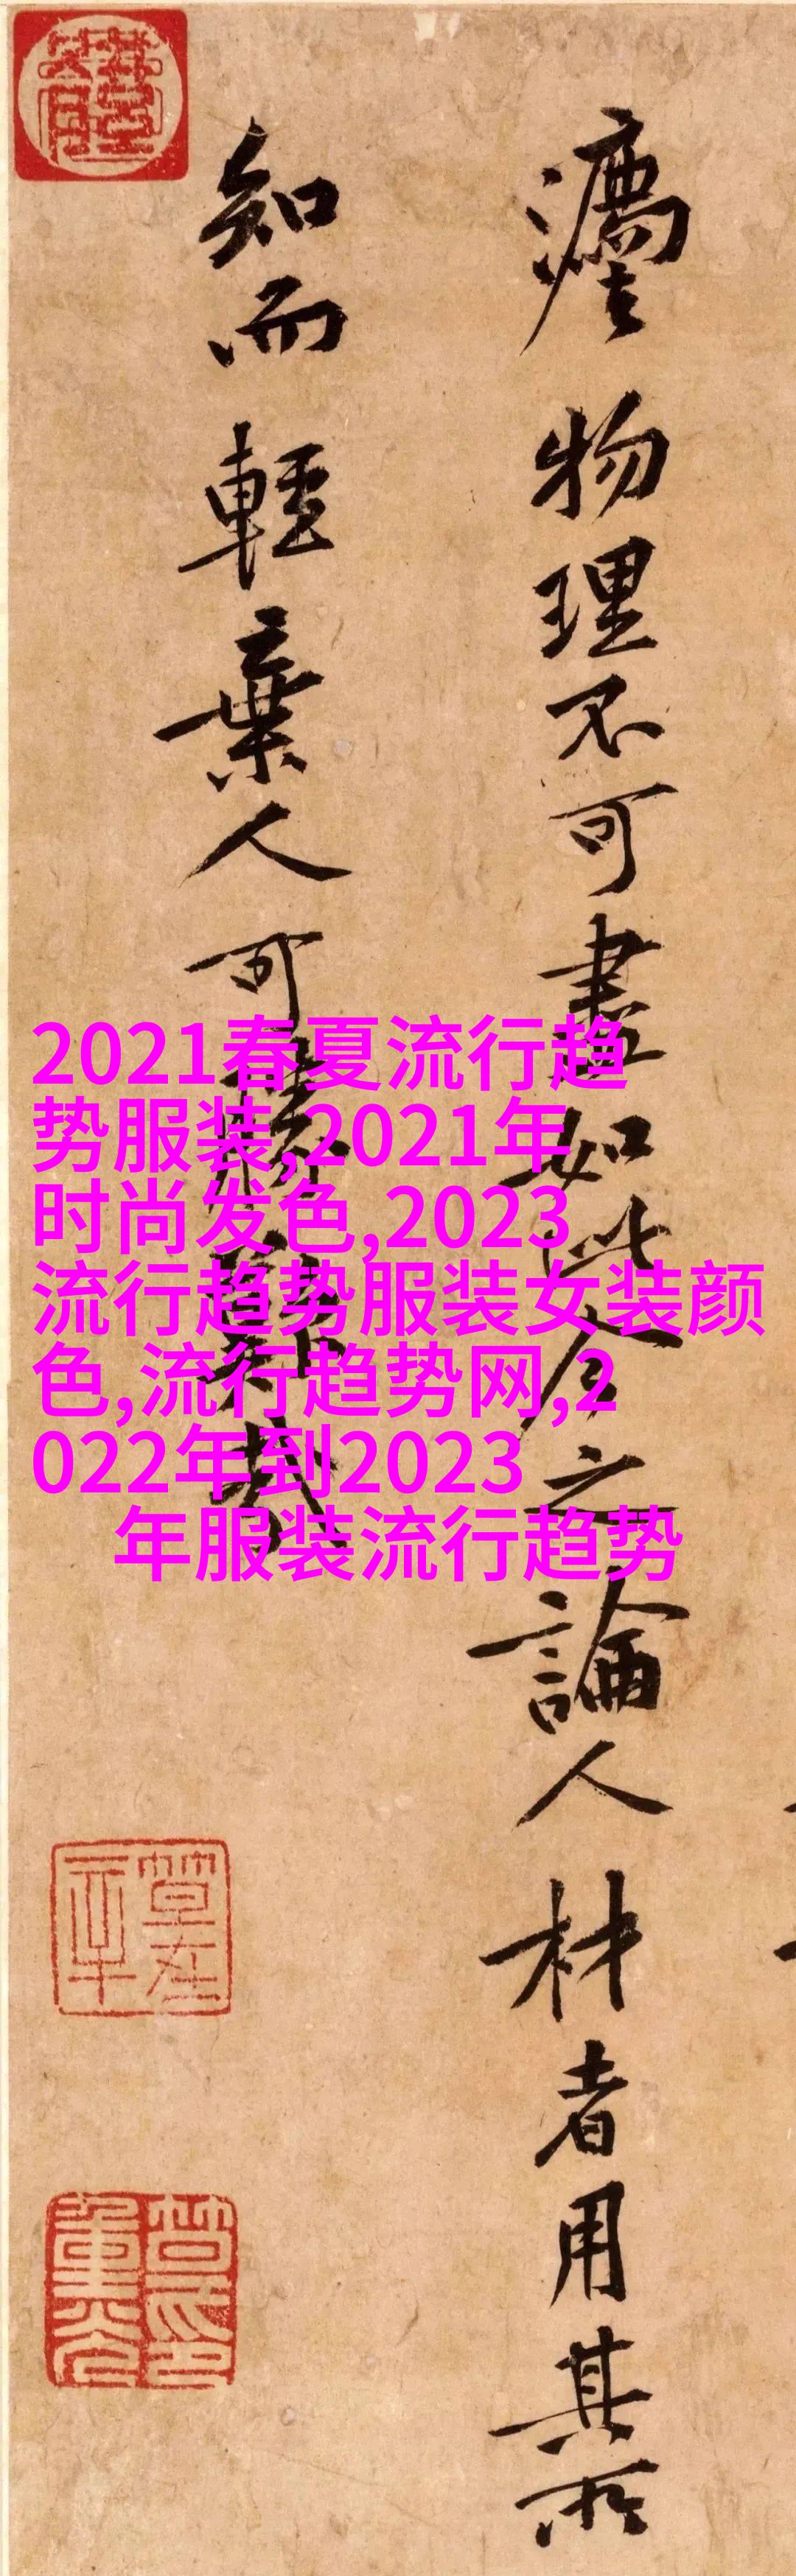 物理不可盡如此今之論人材者用其所
知而輕棄人可勝哉
2021春夏流行趋
势服装,2021年
时尚发色,2023
流行趋势服装女装颜
色,流行趋势网,2
022年到2023
年服装流行趋势